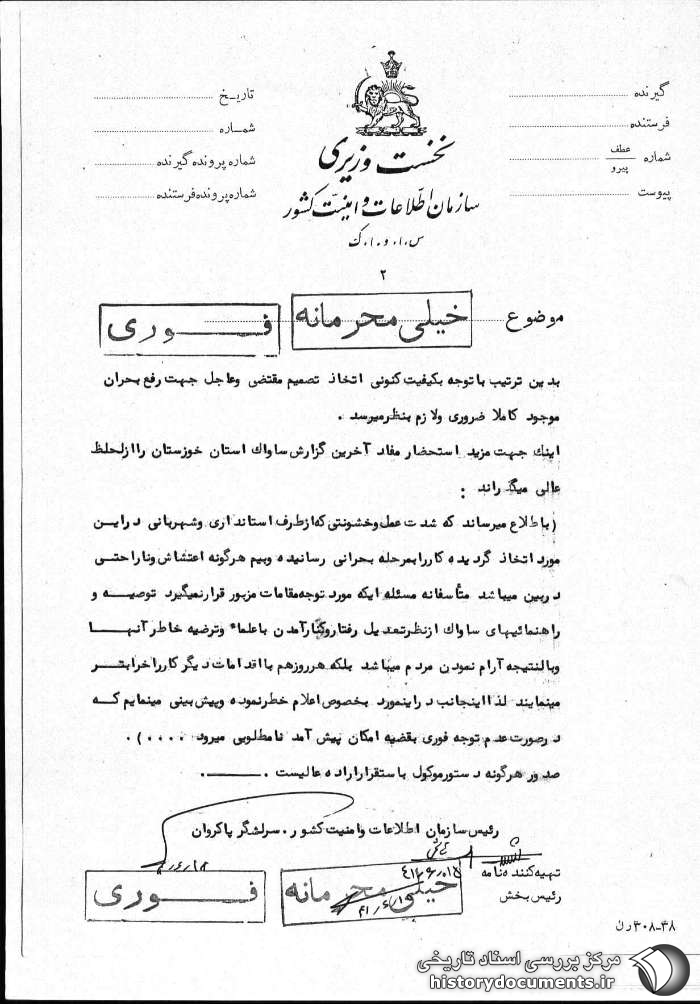 گیرنده
فرستنده
شماره عطف پیرو
پیوست
تاریخ
شماره
شماره پرونده گیرنده
شماره پرونده فرستنده
نخست وزیری
سازمان اطلاعات و امنیت کشور
س.ا.و.ا.ک
۲
موضوع خیلی محرمانه فوری
بدین ترتیب با توجه بکیفیت کنونی اتخاذ تصمیم مقتضی وعاجل جهت رفع بحران
موجود کاملا ضروری ولازم بنظر میرسد .
اینك جهت مزید استحضار مفاد آخرین گزارش ساواك استان خوزستان را ازلحاظ
عالی میگذراند :
(باطلاع میرساند که شدت عمل وخشونتی که ازطرف استانداری وشهربانی دراین
مورد اتخاذ گردیده کاررابمرحله بحرانی رسانیده وبیم هرگونه اغتشاش وناراحتی
دربین میباشد متأسفانه مسئله ایکه مورد توجه مقامات مزبور قرارنمیگیرد توصیه و
راهنمائیهای ساواك ازنظرتعدیل رفتاروکنارآمدن باعلماء وترضیه خاطر آنها
وبالنتیجه آرام نمودن مردم میباشد بلکه هرروزهم بااقدامات دیگر کارراخرابتر
مینمایند لذا اینجانب دراینمورد بخصوص اعلام خطرنموده وپیش بینی مینمایم که
درصورت عدم توجه فوری بقضیه امکان پیش آمد نامطلوبی میرود ....) .
صدور هرگونه دستورموکول باستقرار اراده عالیست .
رئیس سازمان اطلاعات وامنیت کشور . سرلشگر پاکروان
تهیه کننده نامه
رئیس بخش
خیلی محرمانه فوری
۳۸-۳۰۸ ر ن
مرکز بررسی اسناد تاریخی
historydocuments.ir